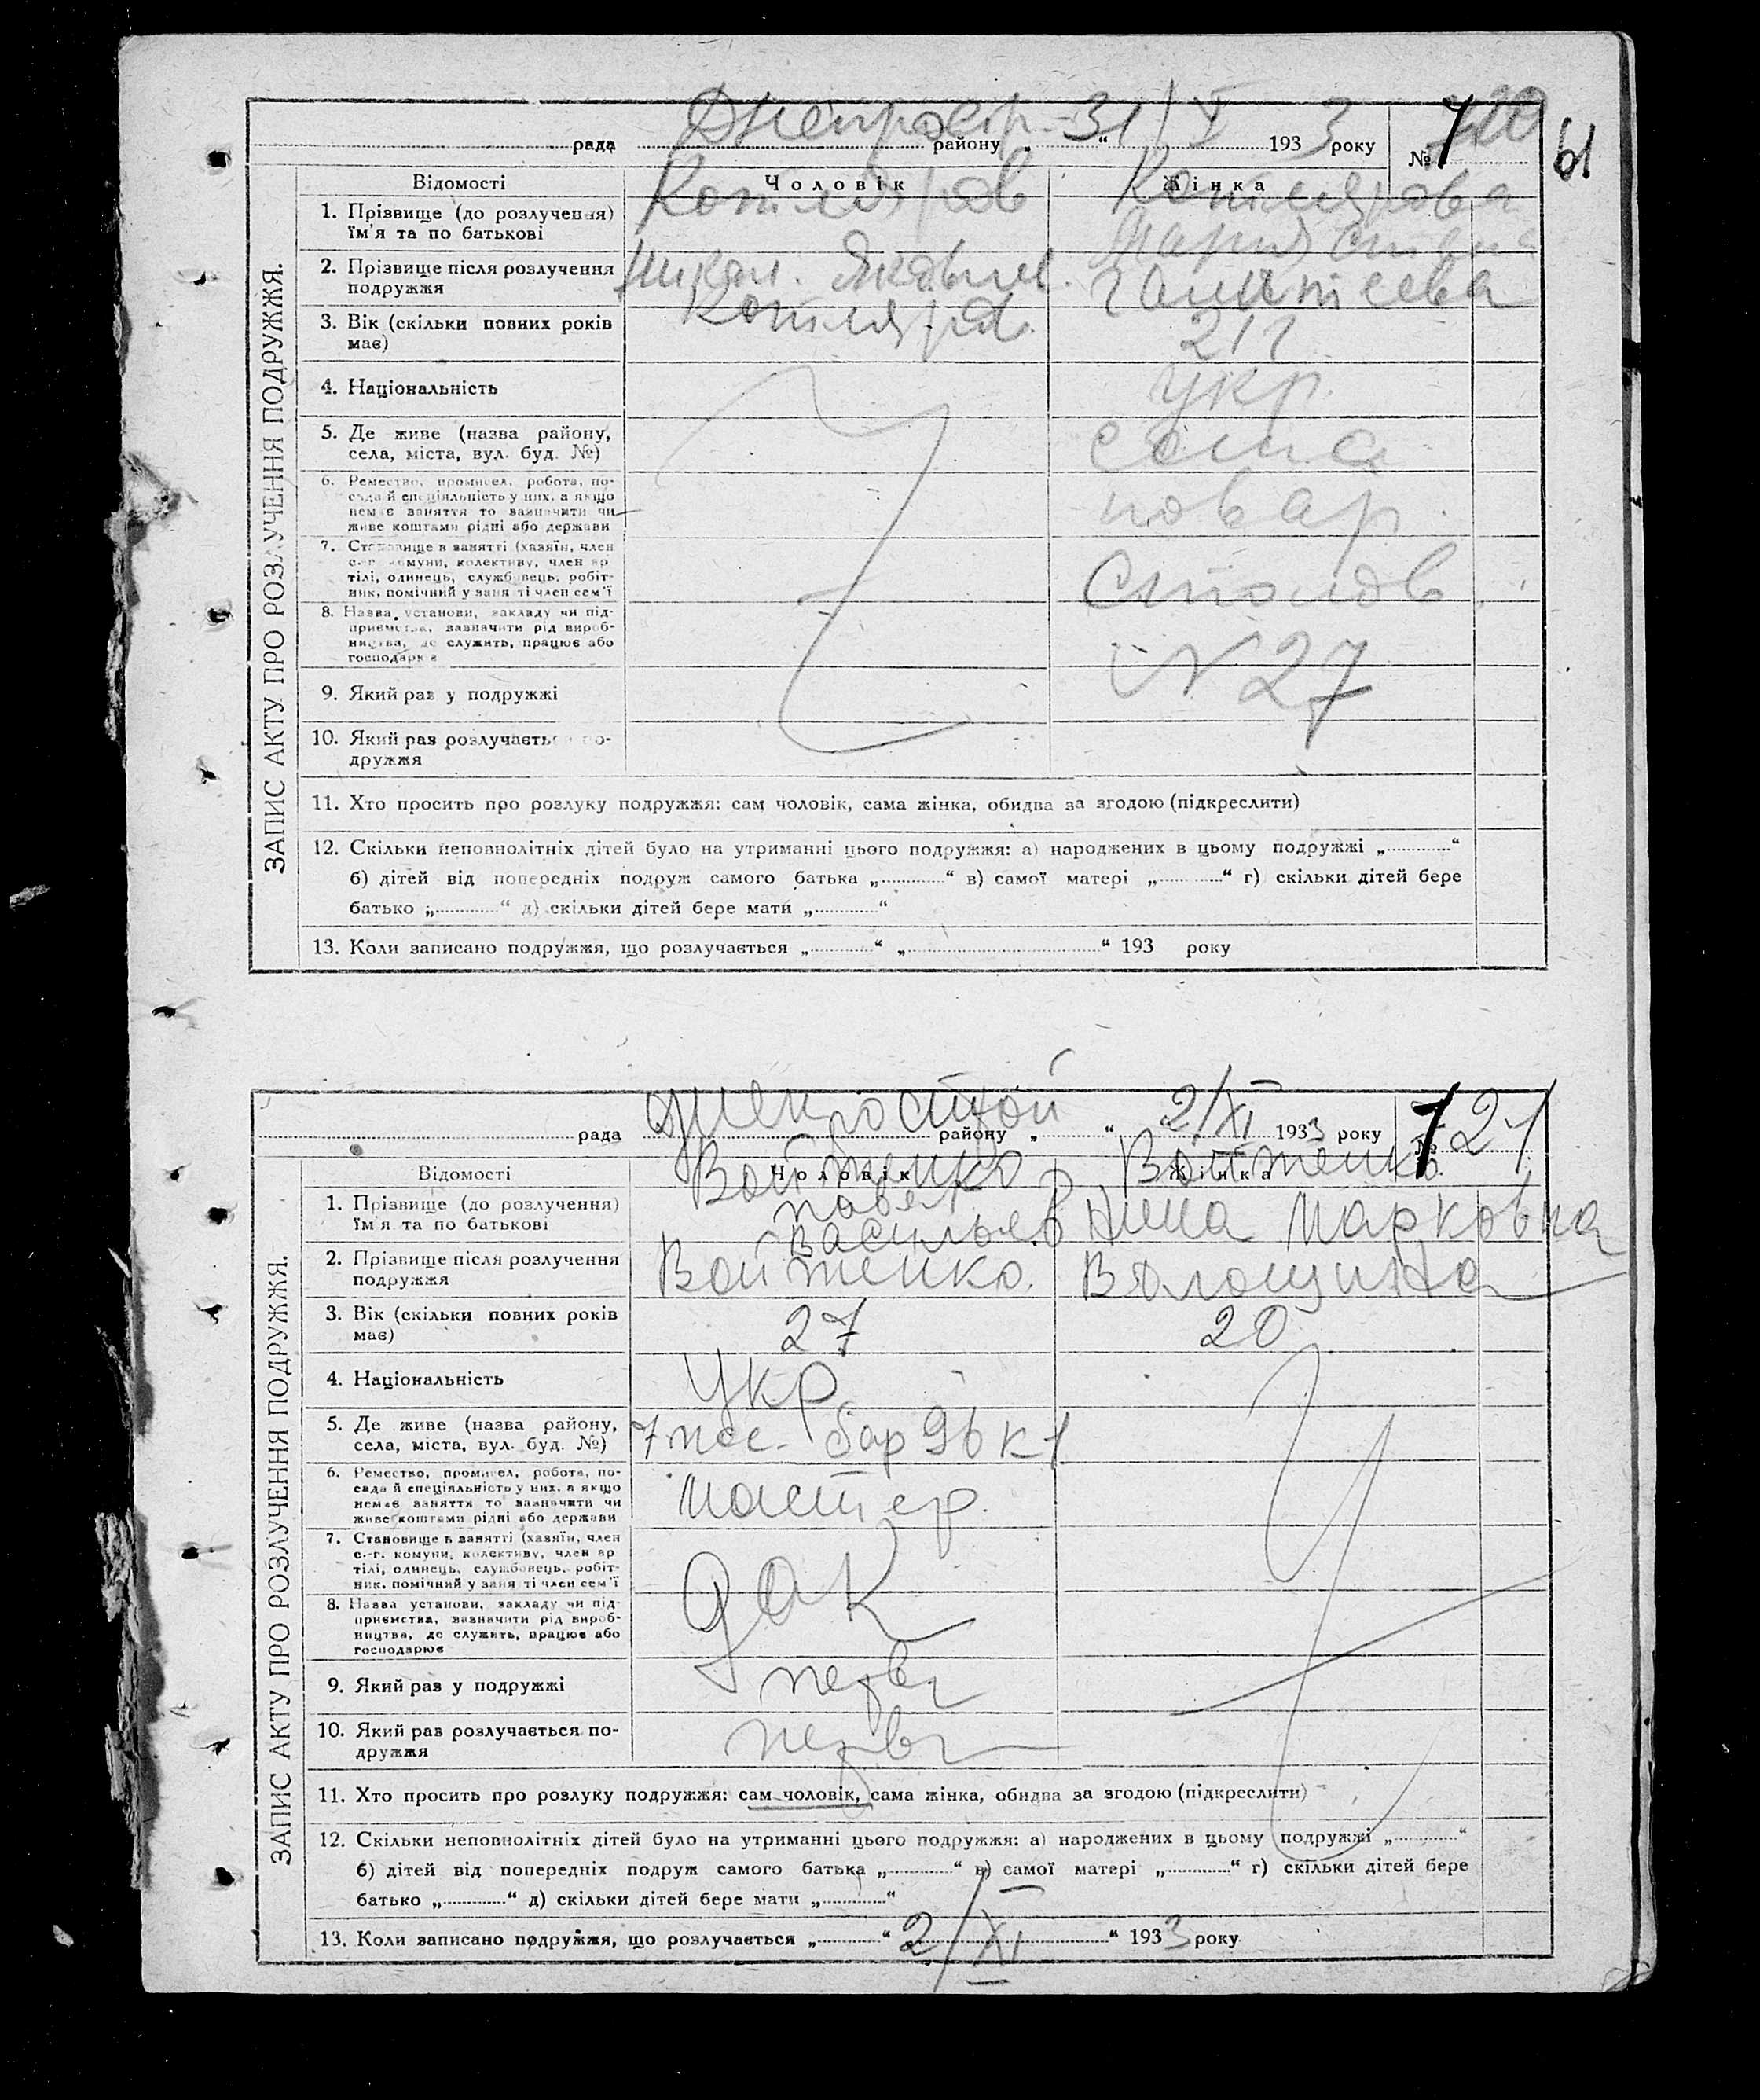 ЗАПИС АКТУ ПРО РОЗЛУЧЕННЯ ПОДРУЖЖЯ.
рада Днепрострой району „31/X“ 1933 року №
61
Відомості Чоловік Жінка
1. Прізвище (до розлучення) Котляров Котлярова
ім'я та по батькові Мария
2. Прізвище після розлучення
подружжя Котляров
3. Вік (скільки повних років 21 г
має)
4. Національність укр.
5. Де живе (назва району,
села, міста, вул. буд. №)
6. Ремество, промисел, робота, по- повар
сада й спеціяльність у них, а якщо
немає заняття то зазначити чи
живе коштами рідні або держави
7. Становище в занятті (хазяїн, член Столов
с.-г. комуни, колективу, член ар
тілі, одинець, службовець, робіт-
ник, помічний у занятті член сем'ї
8. Назва установи, закладу чи під- № 27
приємства, зазначити рід вироб-
ництва, де служить, працює або
господарює
9. Який раз у подружжі
10. Який раз розлучається по-
дружжя
11. Хто просить про розлуку подружжя: сам чоловік, сама жінка, обидва за згодою (підкреслити)
12. Скільки неповнолітніх дітей було на утриманні цього подружжя: а) народжених в цьому подружжі „ “
б) дітей від попередніх подруж самого батька „ “ в) самої матері „ “ г) скільки дітей бере
батько „ “ д) скільки дітей бере мати „ “
13. Коли записано подружжя, що розлучається „ “ „ “ 193 року
ЗАПИС АКТУ ПРО РОЗЛУЧЕННЯ ПОДРУЖЖЯ.
рада Днепрострой району „ “ 2/XI 1933 року № 121
Відомості Чоловік Жінка
Войтенко Войтенко
1. Прізвище (до розлучення) Павел Нина Марковна
ім'я та по батькові Васильев
2. Прізвище після розлучення Войтенко. Волощина
подружжя
3. Вік (скільки повних років 27 20
має)
4. Національність Укр
5. Де живе (назва району, 7 пос. бар 96 к 1
села, міста, вул. буд. №)
6. Ремество, промисел, робота, по- мастер.
сада й спеціяльність у них, а якщо
немає заняття то зазначити чи
живе коштами рідні або держави
7. Становище в занятті (хазяїн, член ДАК
с.-г. комуни, колективу, член ар
тілі, одинець, службовець, робіт-
ник, помічний у занятті член сем'ї
8. Назва установи, закладу чи під-
приємства, зазначити рід вироб-
ництва, де служить, працює або
господарює
9. Який раз у подружжі перв
10. Який раз розлучається по- перв
дружжя
11. Хто просить про розлуку подружжя: сам чоловік, сама жінка, обидва за згодою (підкреслити)
12. Скільки неповнолітніх дітей було на утриманні цього подружжя: а) народжених в цьому подружжі „ “
б) дітей від попередніх подруж самого батька „ “ в) самої матері „ “ г) скільки дітей бере
батько „ “ д) скільки дітей бере мати „ “
13. Коли записано подружжя, що розлучається „ “ 2/XI “ 1933 року